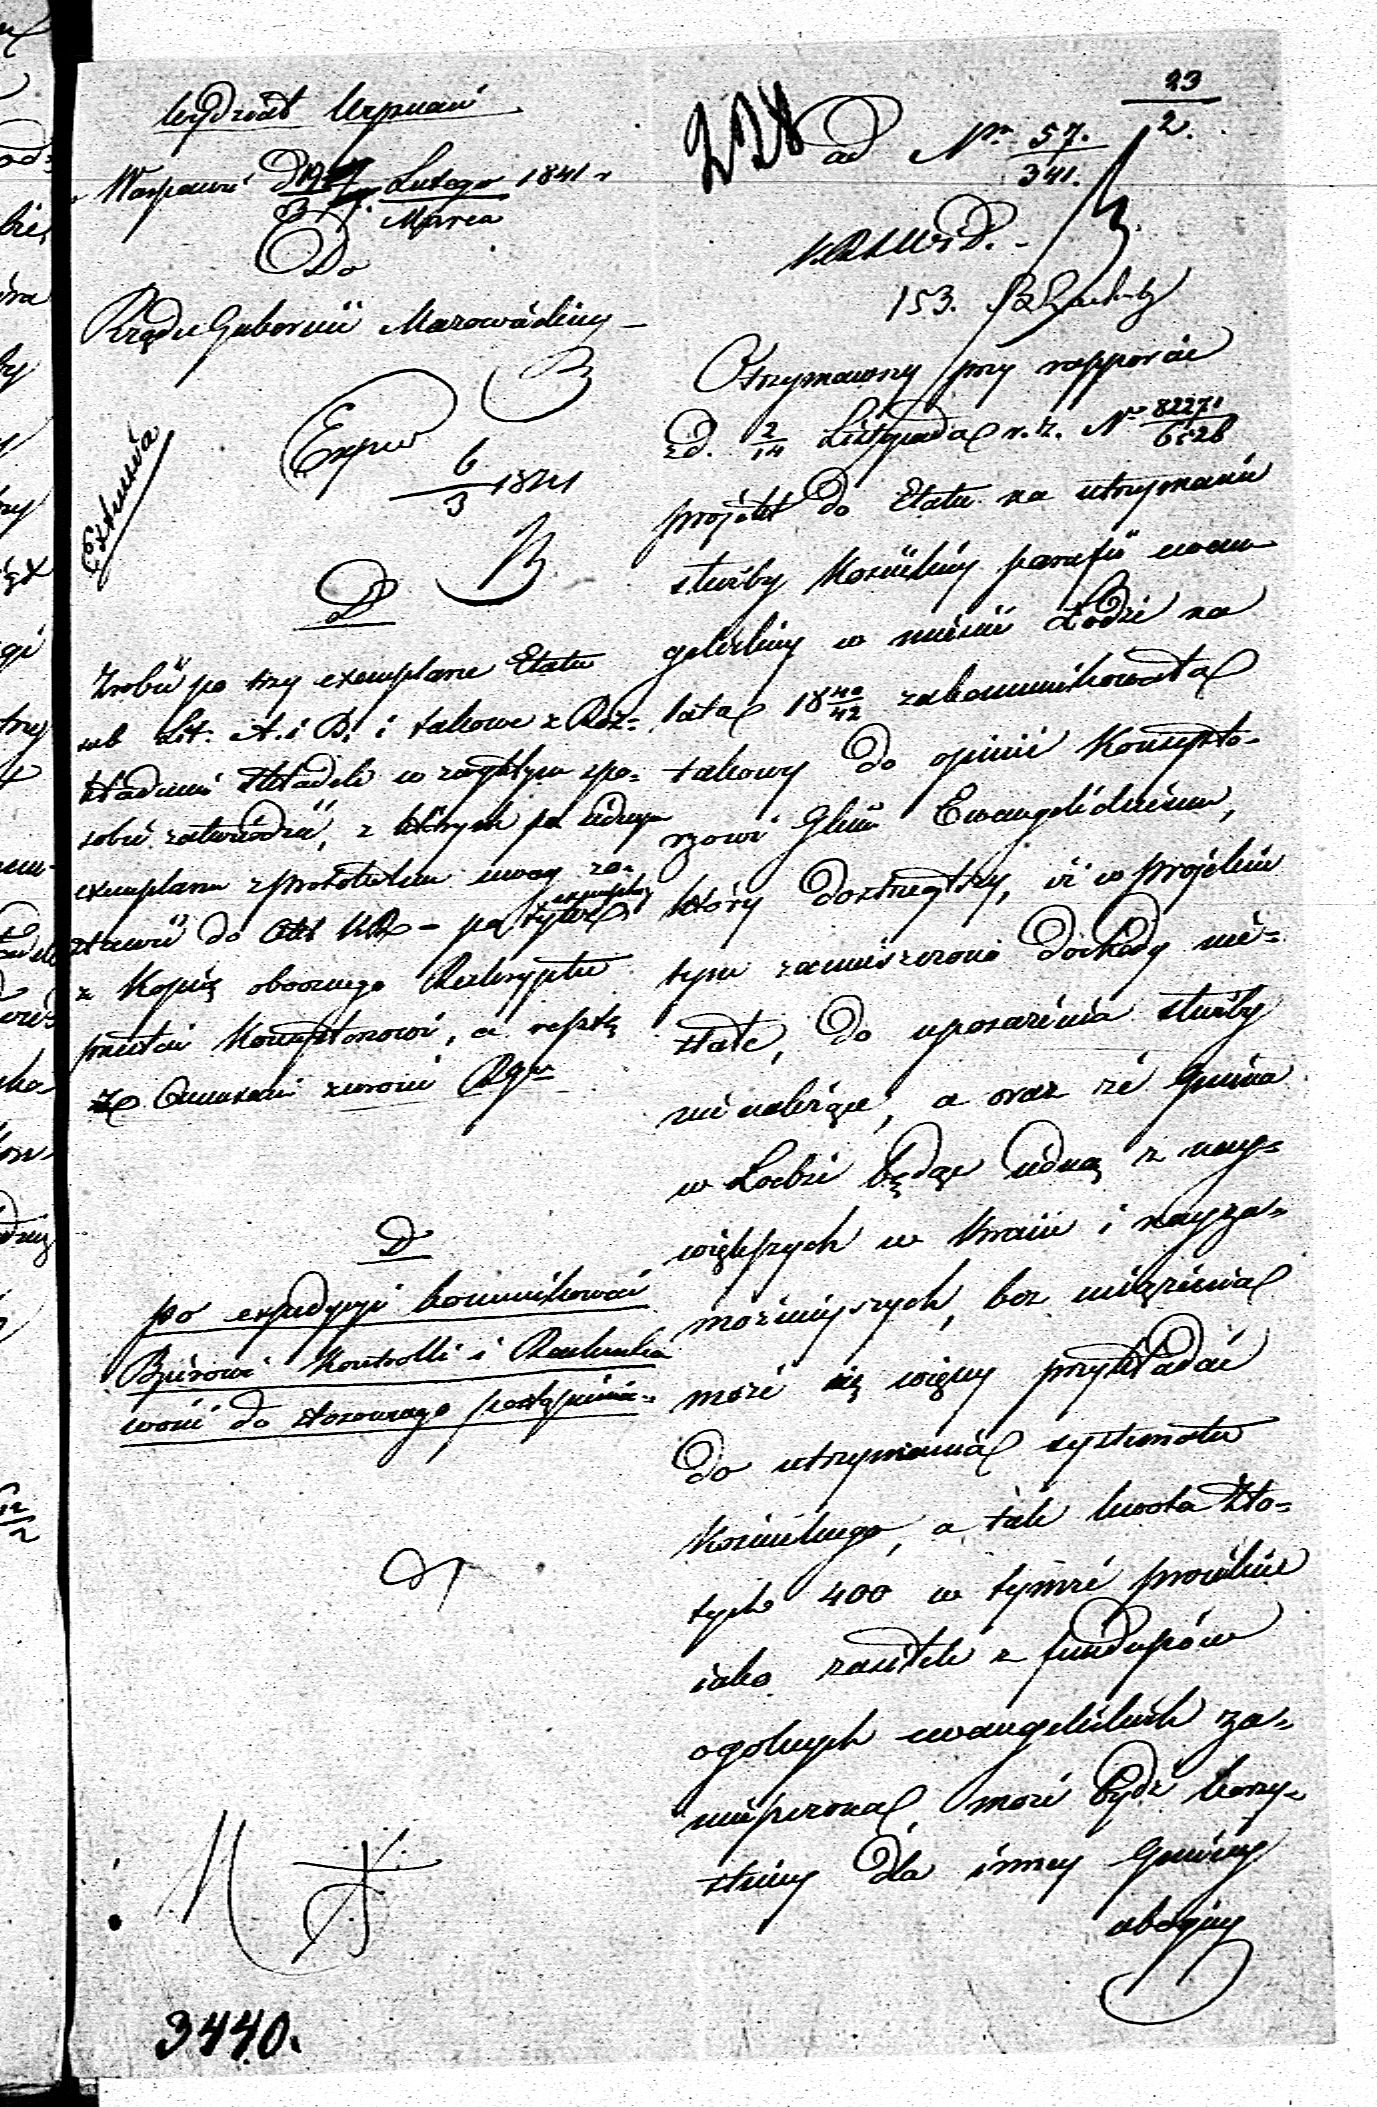 Wydział Wyznań
Warszawa d 19 Lutego 1841 r
Marca
Do
Rządu Gubernii Mazowieckiey
Exped
6
3 1841
D
Zrobić po trzy exemplarze Etatu
sub Lit: A. i B. i takowe z Roz-
kładami Składek w zwykłym spo-
sobie zatwierdzić, z których po iednym
exemplarzu z protokułem uwag zo-
stawić do Akt KR - po tyleż exemplarzy
z Kopią obocznego Reskryptu
przesłać Konsystorzowi, a resztę
zwrócić RGu
D
po expedycyi kommunikować
Biurowi Kontrolli i Rachunko
wości do stosownego postąpienia.
3440.
228
23
2.
ad Nr 57.
341.
153.
Otrzymawszy przy rapporcie
z d. 2/14 Listopada r. z. Nr 82271
projekt do Etatu na utrzymanie
służby Kościelnej parafii ewan
gelickiey w mieście Łodzi na
lata 18 40/42 zakommunikowała
takowy do opinii Konsysto-
rzowi Głmu Ewangelickiemu,
który dostrzegłszy, iż w projekcie
tym zamieszczone dochody nie-
stałe, do uposażenia służby
nie należące, a oraz że Gmina
w Łodzi będąc iedną z nay-
większych w Kraiu i nayza-
możnieyszych, bez uciążenia
może się więcey przykładać
do utrzymania systematu
Kościelnego, a tak kwota Zło-
tych 400 w tymże proiekcie
iako zasiłek z funduszów
ogolnych ewangelickich za-
mieszczona może bydź korzy-
stniey dla inney Gminy
uboższey